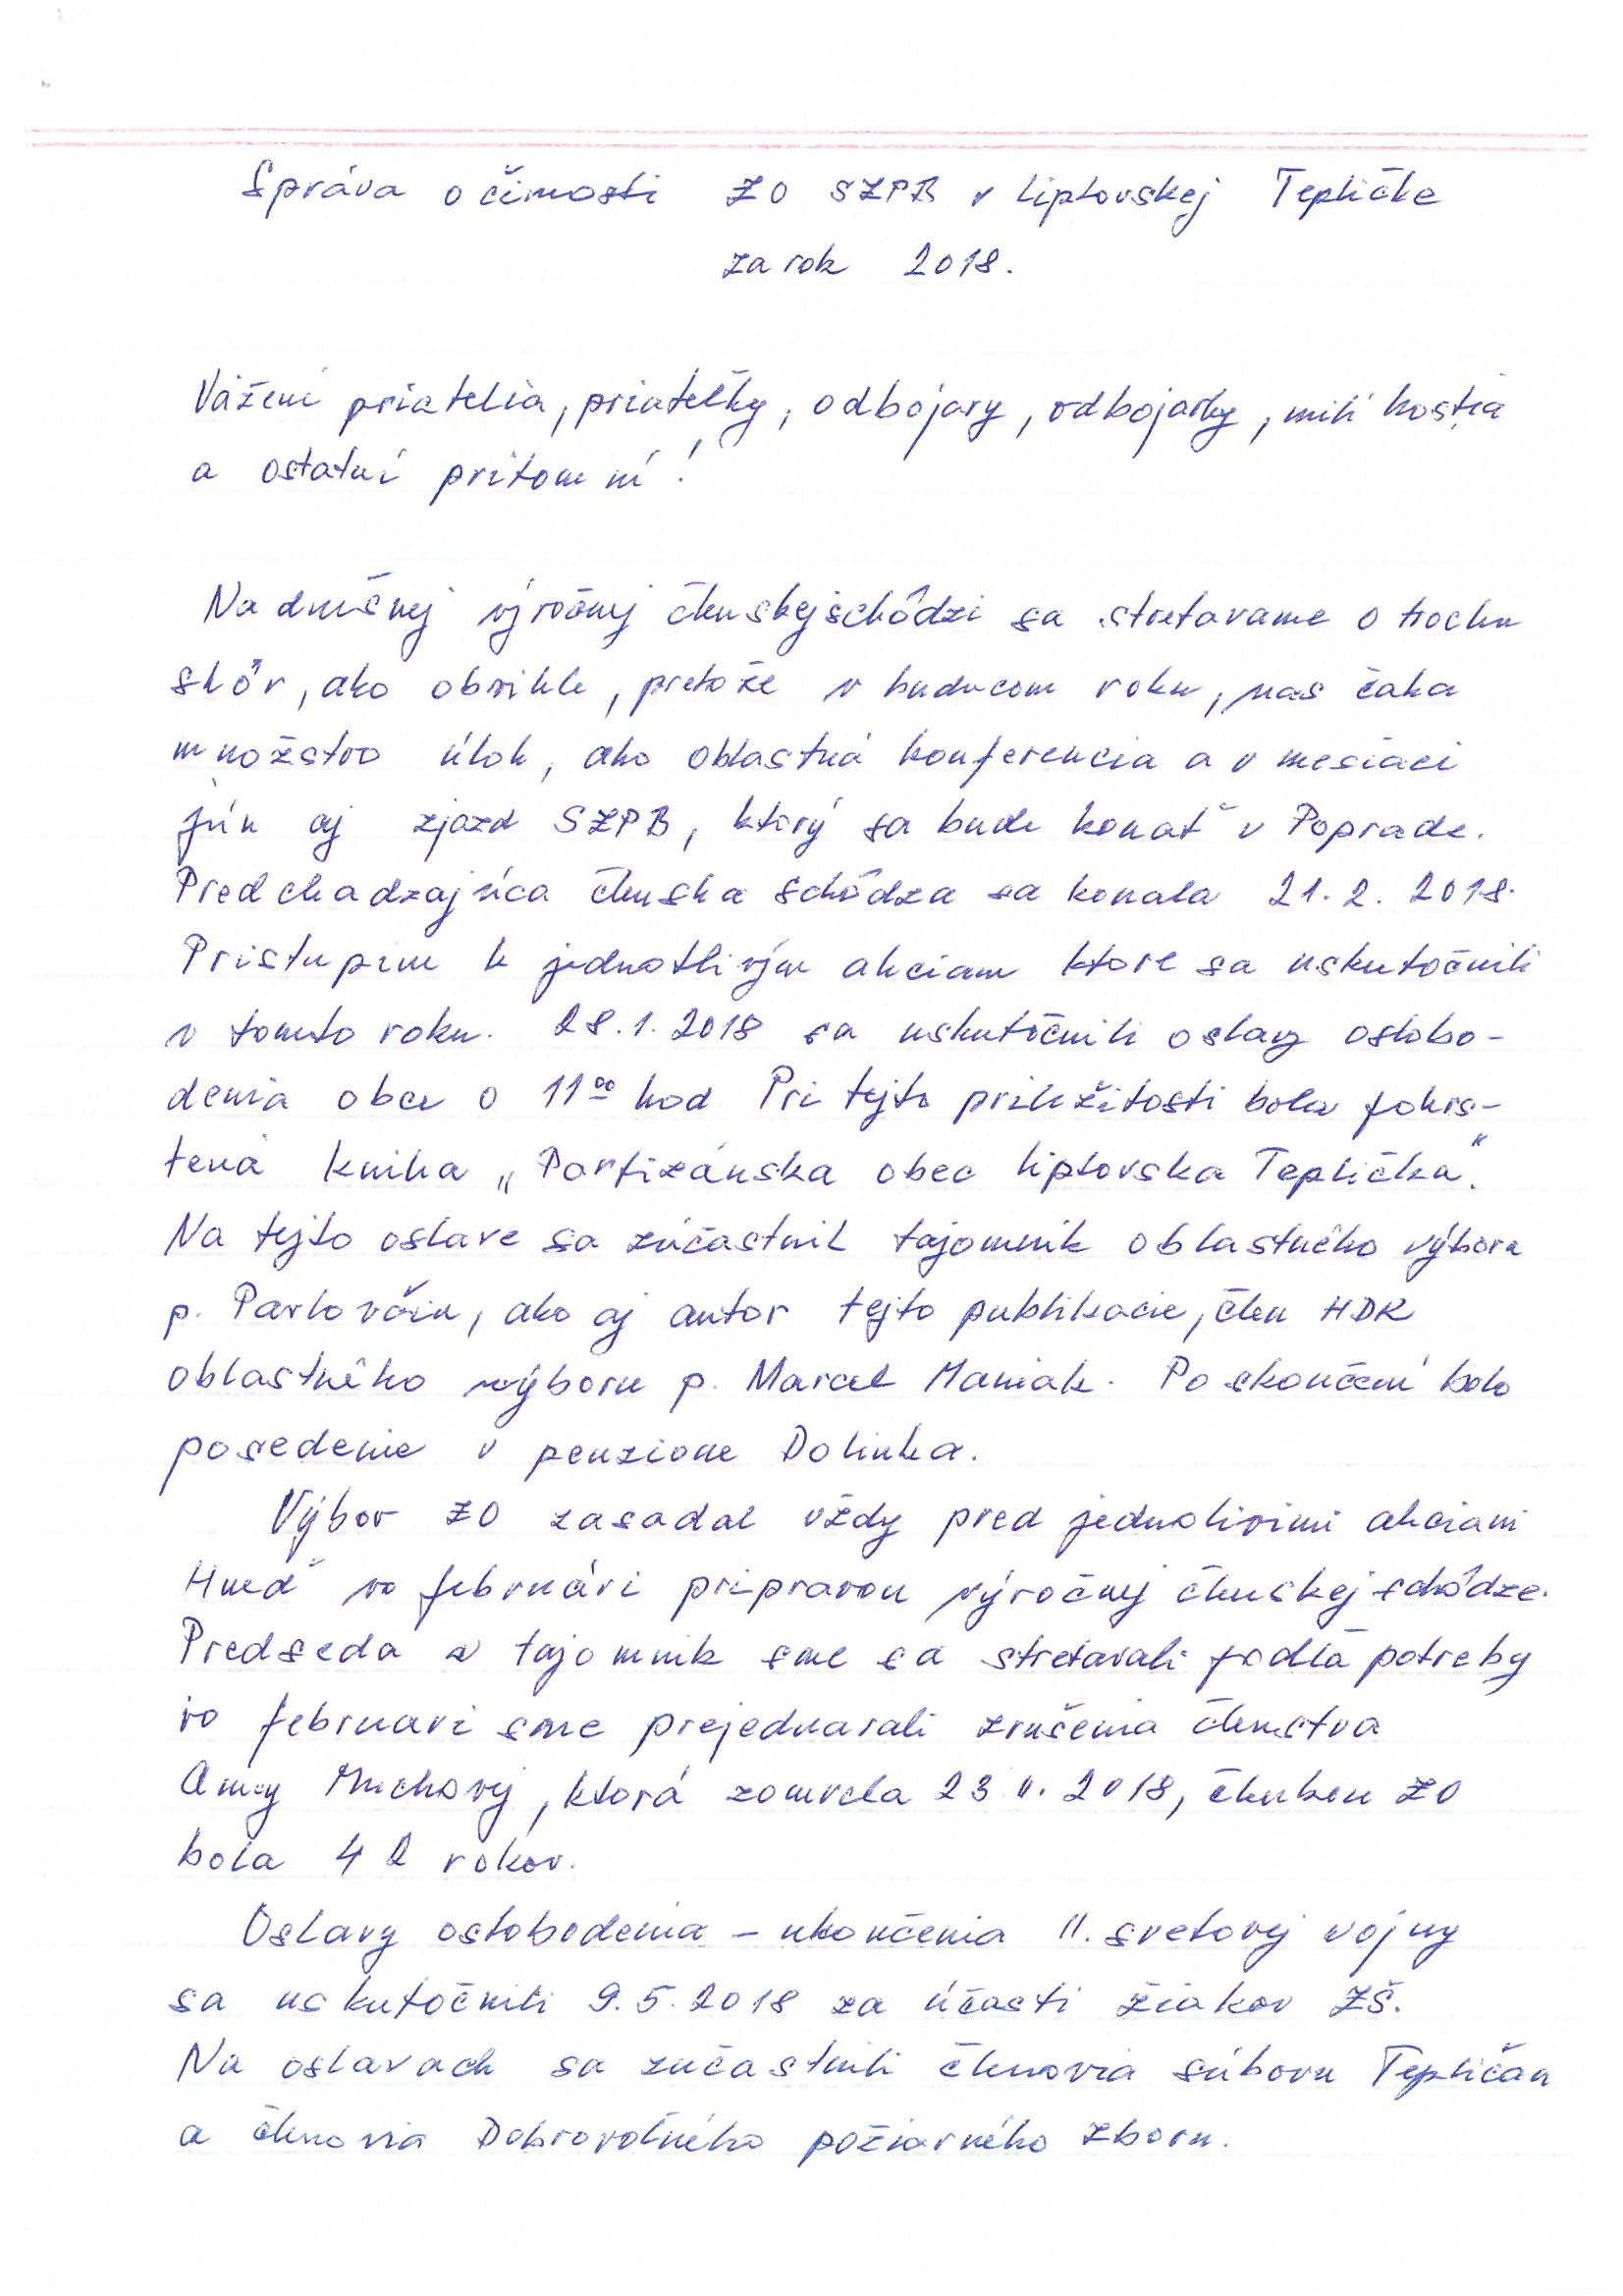 Správa o činnosti ZO SZPB v Liptovskej Tepličke
za rok 2018.
Vážení priatelia, priateľky, odbojary, odbojarky, milí hostia
a ostatní prítomní!
Na dnešnej výročnej členskej schôdzi sa stretavame o trochu
skôr, ako obvikle, pretože v buducom roku, nas čaka
množstvo úloh, ako oblastná konferencia a v mesiaci
jún aj zjazd SZPB, ktorý sa bude konať v Poprade.
Predchadzajúca členska schôdza sa konala 21.2.2018.
Pristupim k jednotlivým akciam ktore sa uskutočnili
v tomto roku. 28.1.2018 sa uskutočnili oslavy oslobo-
denia obce o 11⁰⁰ hod Pri tejto priležitosti bola pokrs-
tená kniha „Partizánska obec Liptovska Teplička“.
Na tejto oslave sa zúčastnil tajomnik oblastného výboru
p. Pavlovčin, ako aj autor tejto publikacie, člen HDK
oblastného výboru p. Marcel Maniak. Po skončení bolo
posedenie v penzione Dolinka.
Výbor ZO zasadal vždy pred jednolivimi akciami
Hneď vo februári pripravou výročnej členskej schôdze.
Predseda a tajomnik sme sa stretavali podľa potreby
vo februari sme prejednavali zrušenia členstva
Anny Muchovej, ktorá zomrela 23.II.2018, členkou ZO
bola 42 rokov.
Oslavy oslobodenia – ukončenia II. svetovej vojny
sa uskutočnili 9.5.2018 za účasti žiakov ZŠ.
Na oslavach sa zučastnili členovia súboru Tepličan
a členovia Dobrovoľného požiarného zboru.